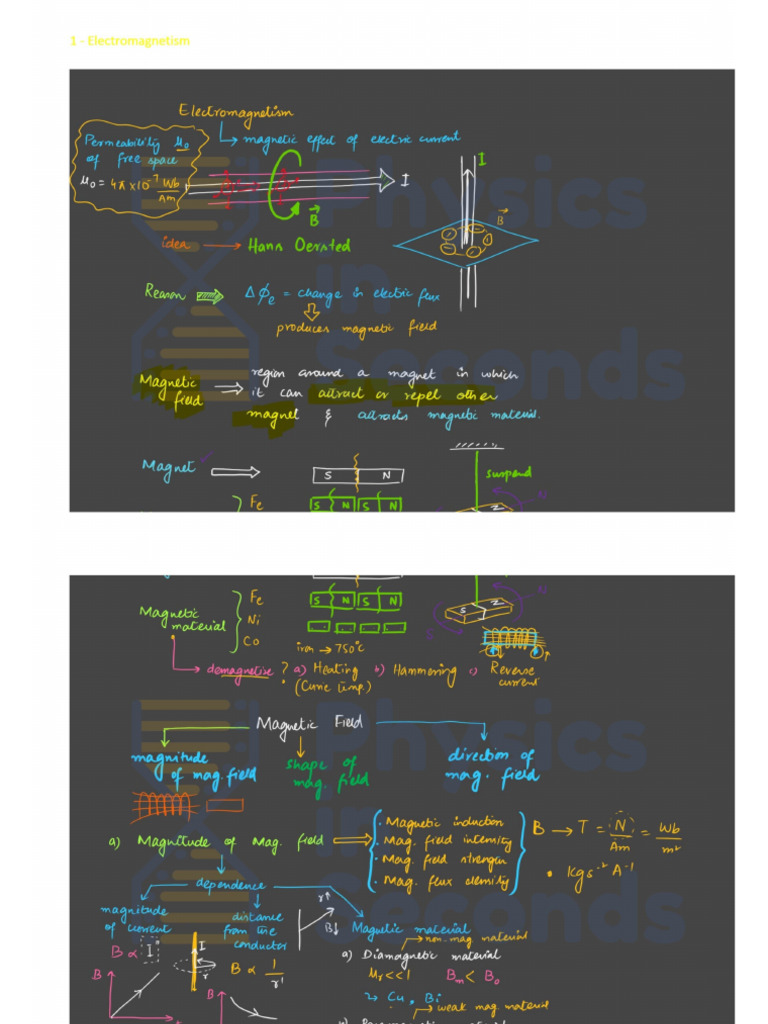 1 - Electromagnetism
Electromagnetism
magnetic effect of electric current
Permeability μ₀
of free space
μ₀ = 4π×10⁻⁷ Wb/Am
I
B⃗
I
B⃗
idea → Hans Oersted
Reason ⇒ Δϕe = change in electric flux
produces magnetic field
Magnetic field ⇒ region around a magnet in which
it can attract or repel other
magnet & attracts magnetic material.
Magnet ⇒ S N
suspend
N
S N S N
Fe
Physics
in
Seconds
Magnetic material
Fe
Ni
Co
S N S N
S N
N
S
iron → 750°C
demagnetise ? a) Heating b) Hammering c) Reverse current
(Curie temp.)
Magnetic Field
magnitude of mag. field
shape of mag. field
direction of mag. field
a) Magnitude of Mag. field ⇒
· Magnetic induction
· Mag. field intensity
· Mag. field strength
· Mag. flux density
B → T = N/Am = Wb/m²
• kgs⁻²A⁻¹
dependence
magnitude of current
B ∝ I
distance from the conductor
I
r
B ∝ 1/r¹
r↑
B↓
Magnetic material
→ non mag material
a) Diamagnetic material
μr<<1 Bm < B₀
↪ Cu, Bi
→ weak mag material
B
B
Physics
in
Seconds